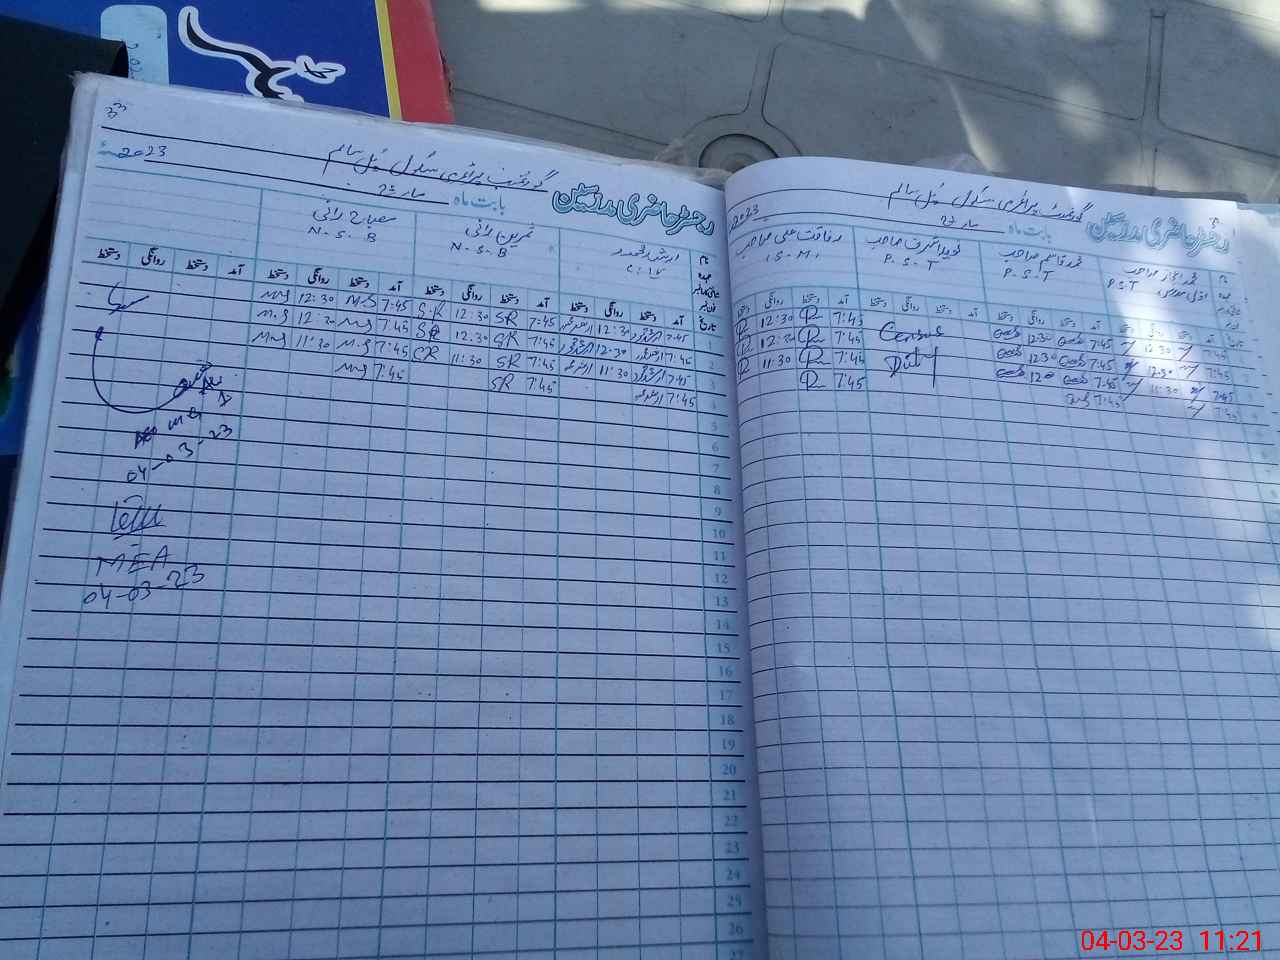 2023
گورنمنٹ پرائمری سکول پُل سالم
رجسٹر حاضری مدرسین
بابت ماہ مارچ
ارشد محمود
C : IV
ثمرین رانی
N - S - B
مصباح رانی
N - S - B
تاریخ آمد دستخط روانگی دستخط آمد دستخط روانگی دستخط آمد دستخط روانگی دستخط آمد دستخط روانگی دستخط
1 7:45 12:30 7:45 SR 12:30 S.R 7:45 M.S 12:30 M.S
2 7:45 12:30 7:45 SR 12:30 SR 7:45 M.S 12:30 M.S
3 7:45 11:30 7:45 SR 11:30 SR 7:45 M.S 11:30 M.S
4 7:45 7:45 SR 7:45 M.S
5
6
7
8
9
10
11
12
13
14
15
16
17
18
19
20
21
22
23
24
25
26
27
04-03-23
MEA
04-03-23
2023
گورنمنٹ پرائمری سکول پُل سالم
رجسٹر حاضری مدرسین
بابت ماہ مارچ
محمد اعجاز صاحب
P.S.T
محمد قاسم صاحب
P.S.T
نوید اشرف صاحب
P.S.T
رفاقت علی صاحب
آمد دستخط روانگی دستخط آمد دستخط روانگی دستخط آمد دستخط روانگی دستخط آمد دستخط روانگی دستخط
7:45 12:30 7:45 12:30 Census 7:45 12:30
7:45 12:30 7:45 12:30 Duty 7:45 12:30
7:45 11:30 7:45 7:45 11:30
7:45 7:45 7:45
04-03-23 11:21